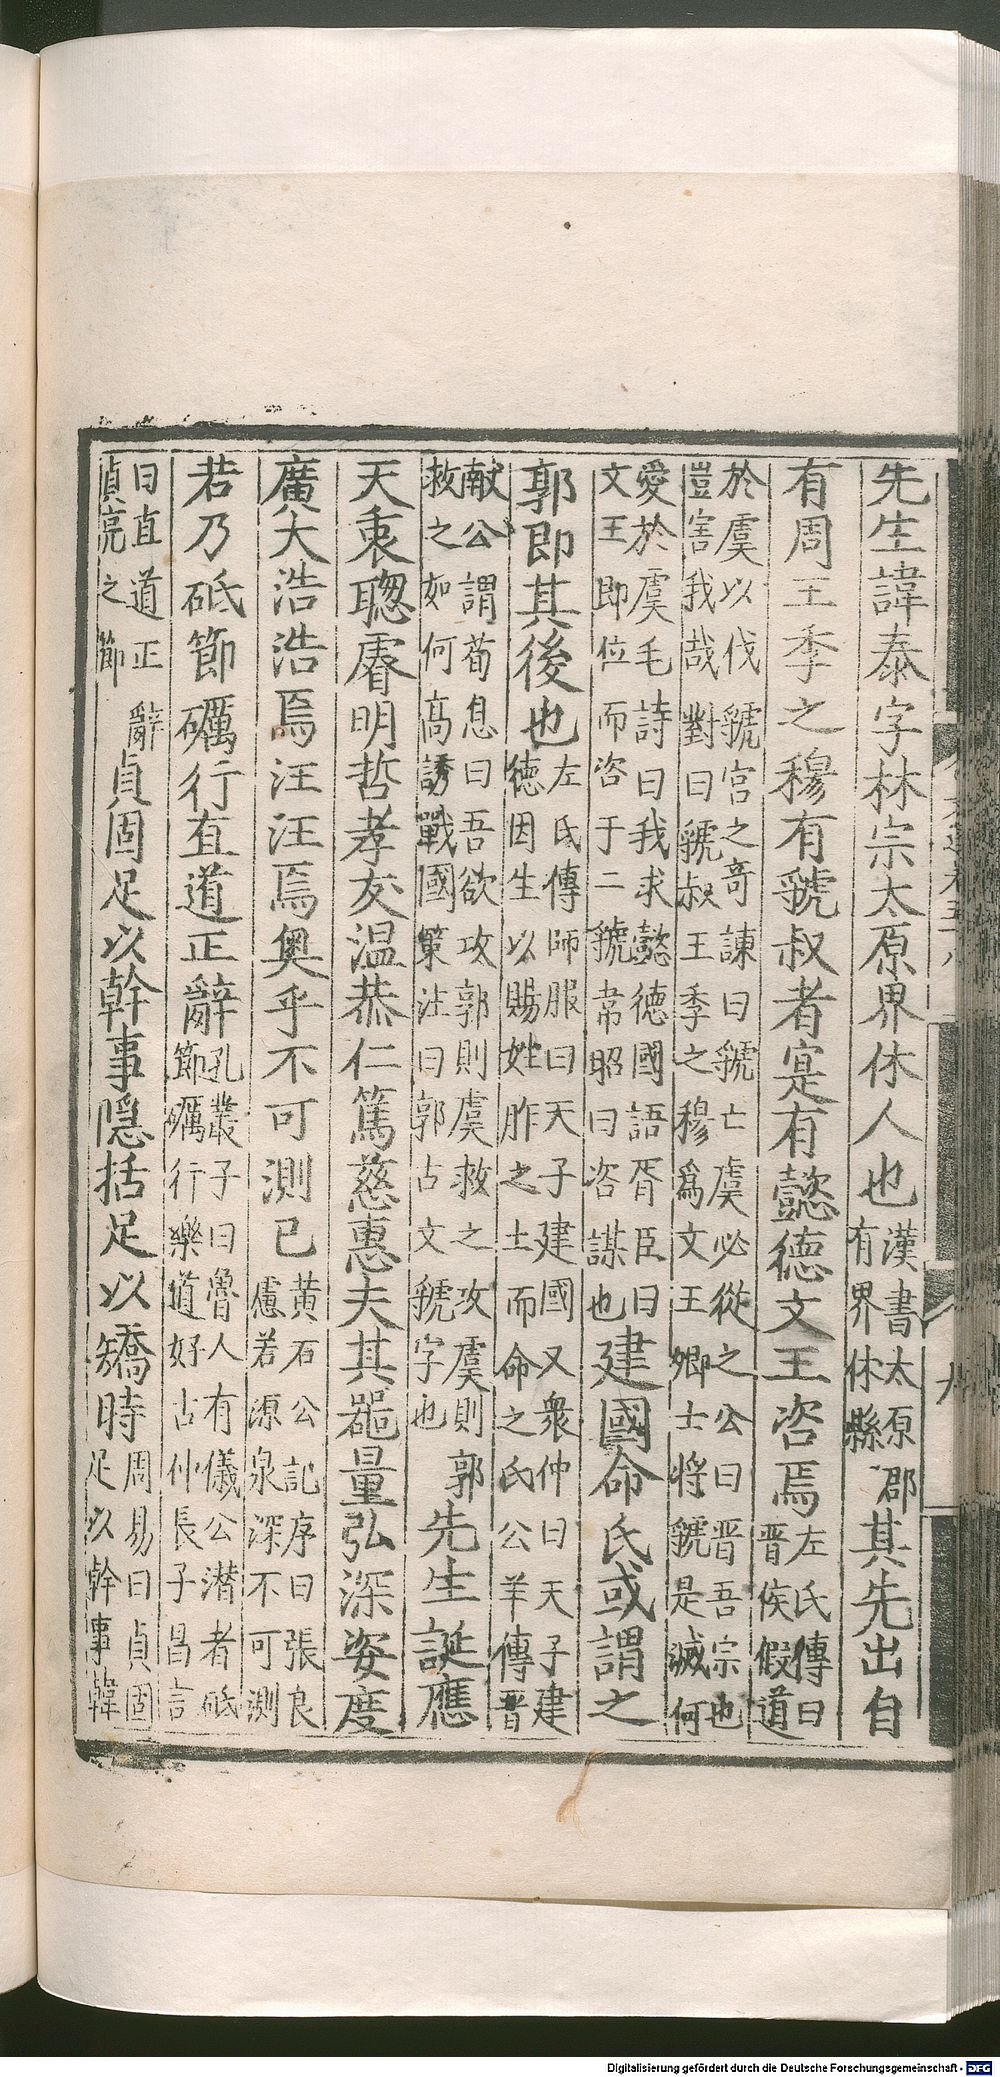 先生諱泰字林宗太原界休人也漢書太原郡有界休縣其先出自
有周王季之穆有虢叔者寔有懿德文王咨焉左氏傳曰晋侯假道
於虞以伐虢宫之竒諫曰虢亡虞必從之公曰晋吾宗也
豈害我哉對曰虢叔王季之穆爲文王卿士将虢是滅何
愛於虞毛詩曰我求懿德國語胥臣曰文王即位而咨于二虢韋昭曰咨謀也建國命氏或謂之
郭即其後也左氏傳師服曰天子建國又衆仲曰天子建德因生以賜姓胙之土而命之氏公羊傳晋
献公謂荀息曰吾欲攻郭則虞救之攻虞則郭救之如何高誘戰國策注曰郭古文虢字也先生誕應
天衷聦睿明哲孝友温恭仁篤慈惠夫其噐量弘深姿度
廣大浩浩焉汪汪焉奥乎不可測已黄石公記序曰張良慮若源泉深不可測
若乃砥節礪行直道正辭孔叢子曰魯人有儀公潜者砥節礪行樂道好古仲長子昌言
曰直道正辭貞亮之節貞固足以幹事隠括足以矯時周易曰貞固足以幹事韓
Digitalisierung gefördert durch die Deutsche Forschungsgemeinschaft - DFG